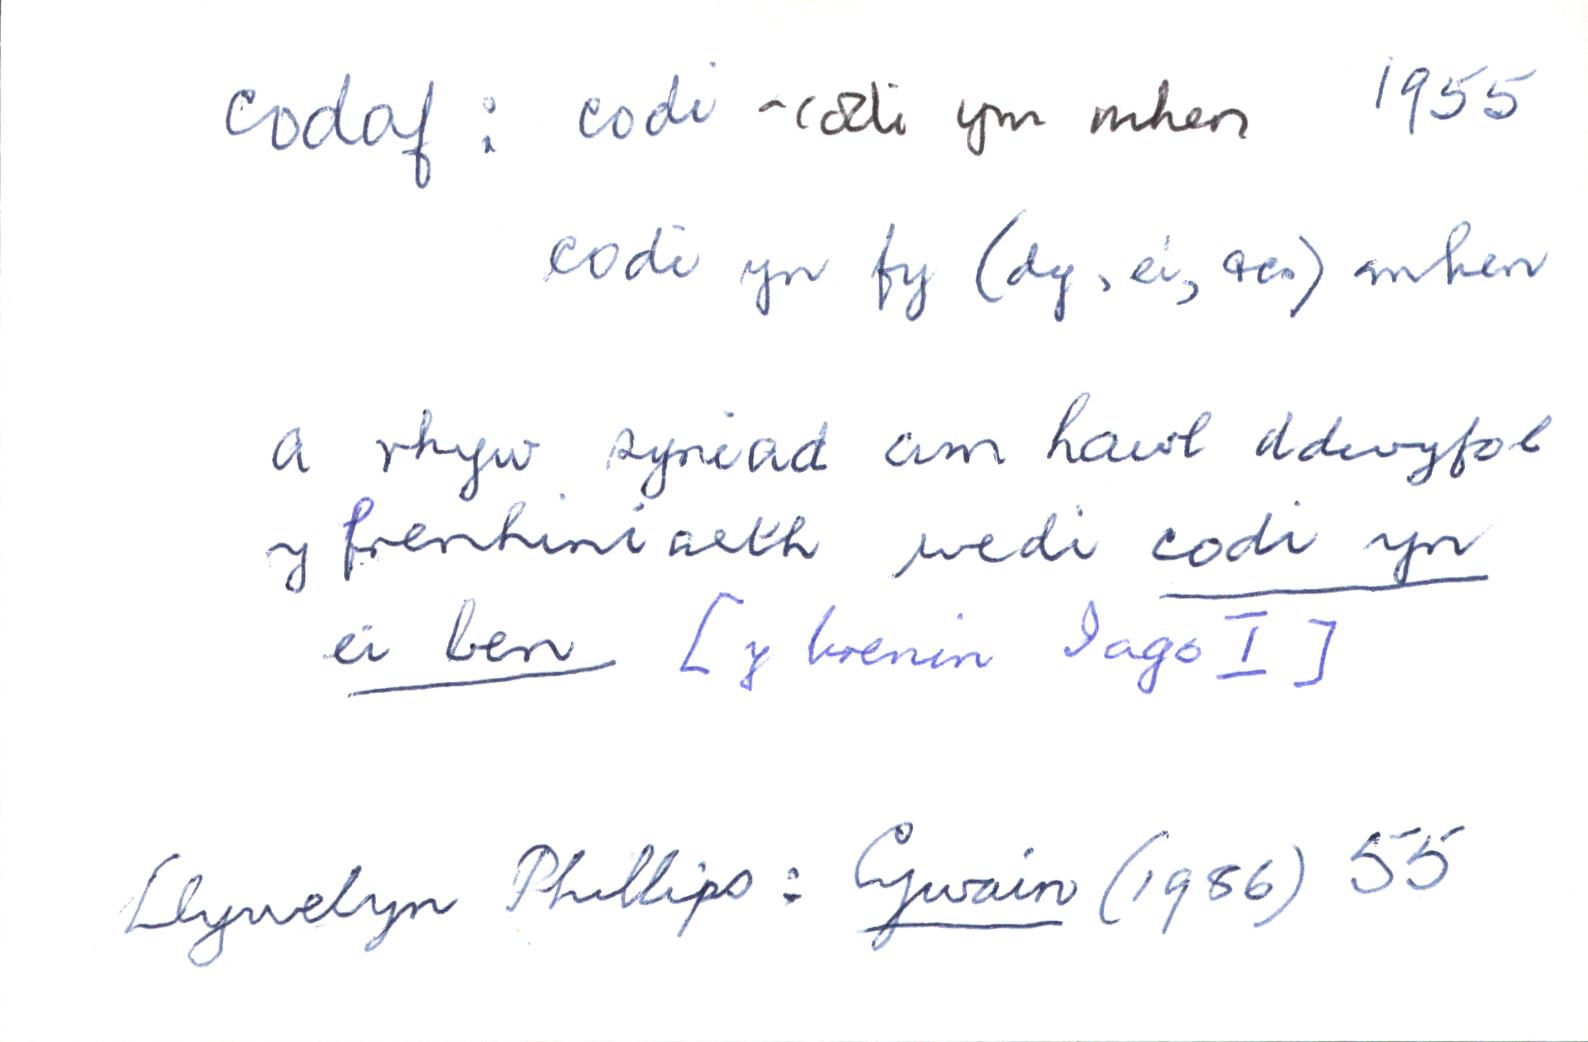 codaf : codi ~codi ym mhen 1955
codi yn fy (dy, ei, &c.) mhen
a rhyw syniad am hawl ddwyfol
y frenhiniaeth wedi codi yn
ei ben [y brenin Iago I]
Llywelyn Phillips : Cywain (1986) 55